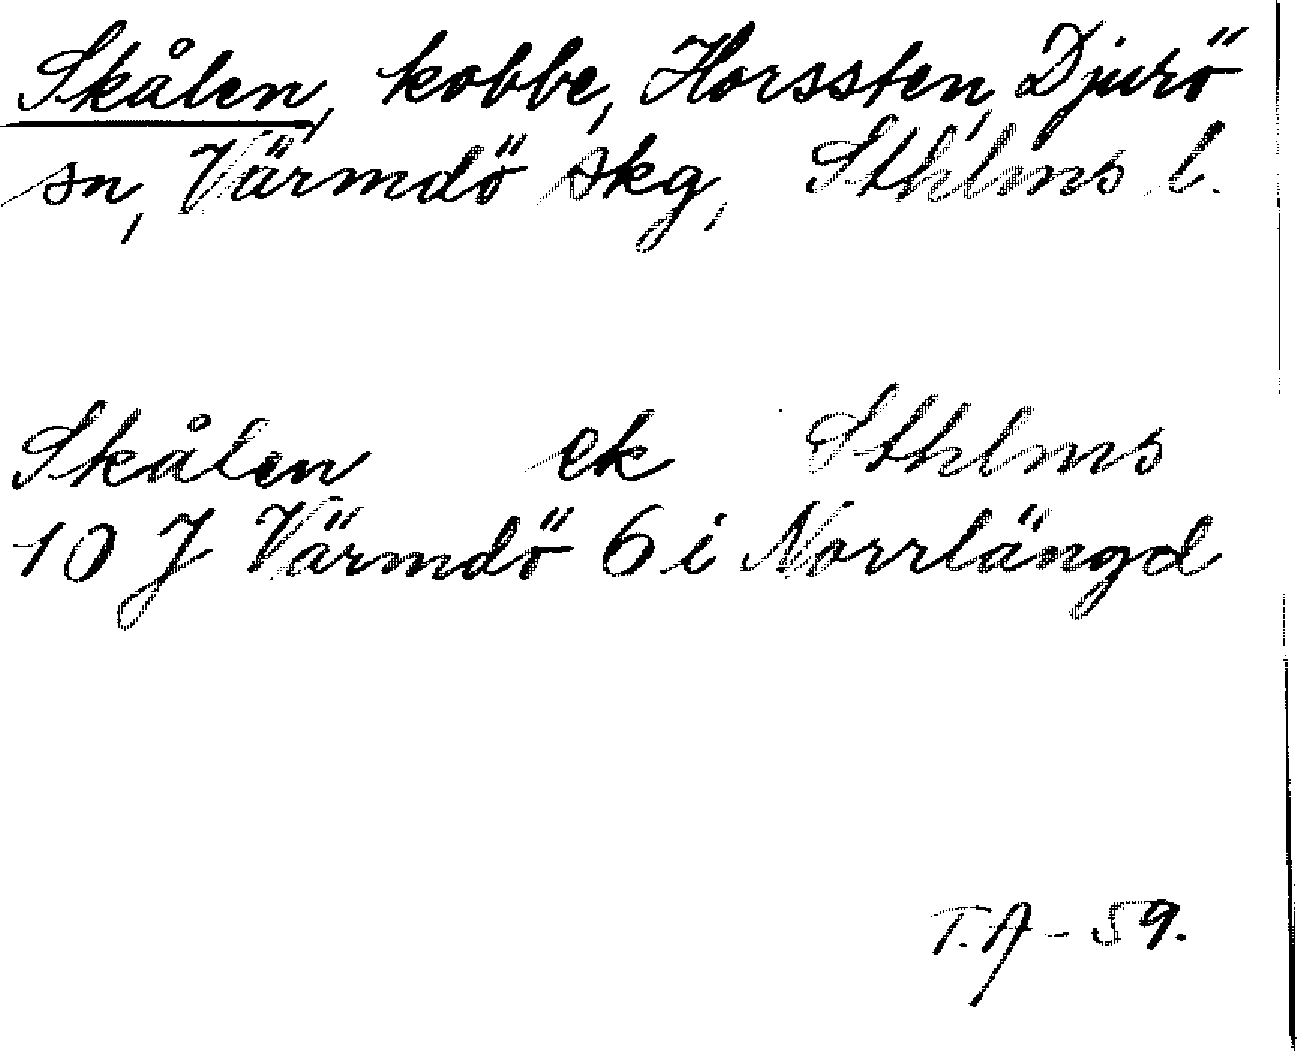 Skålen, kobbe, Horssten, Djurö
sn, Värmdö skg, Sthlms l.
Skålen ek Sthlms
10 J Värmdö 6 i Norrlängd
T.A - 59.